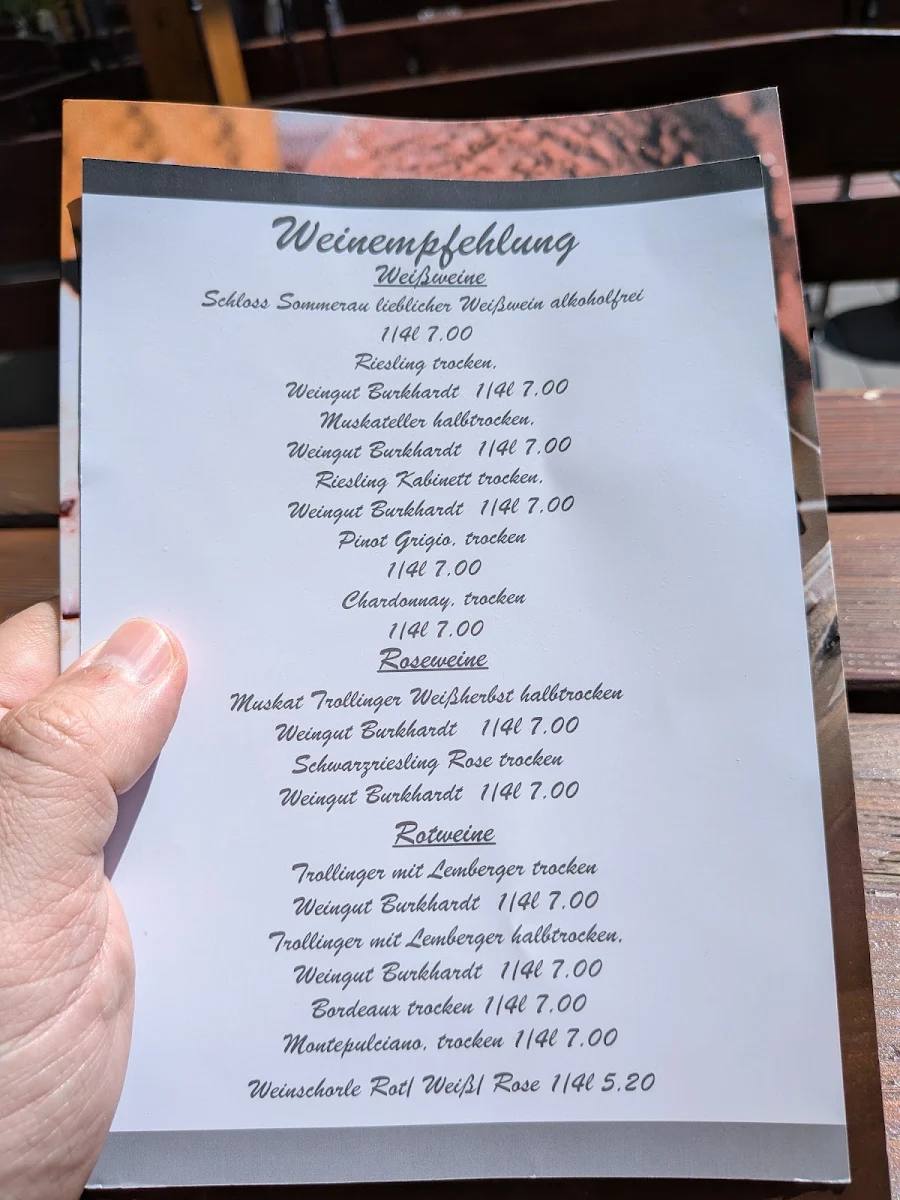 Weinempfehlung
Weißweine
Schloss Sommerau lieblicher Weißwein alkoholfrei
1/4l 7.00
Riesling trocken,
Weingut Burkhardt 1/4l 7.00
Muskateller halbtrocken,
Weingut Burkhardt 1/4l 7.00
Riesling Kabinett trocken,
Weingut Burkhardt 1/4l 7.00
Pinot Grigio, trocken
1/4l 7.00
Chardonnay, trocken
1/4l 7.00
Roseweine
Muskat Trollinger Weißherbst halbtrocken
Weingut Burkhardt 1/4l 7.00
Schwarzriesling Rose trocken
Weingut Burkhardt 1/4l 7.00
Rotweine
Trollinger mit Lemberger trocken
Weingut Burkhardt 1/4l 7.00
Trollinger mit Lemberger halbtrocken,
Weingut Burkhardt 1/4l 7.00
Bordeaux trocken 1/4l 7.00
Montepulciano, trocken 1/4l 7.00
Weinschorle Rot/ Weiß/ Rose 1/4l 5.20